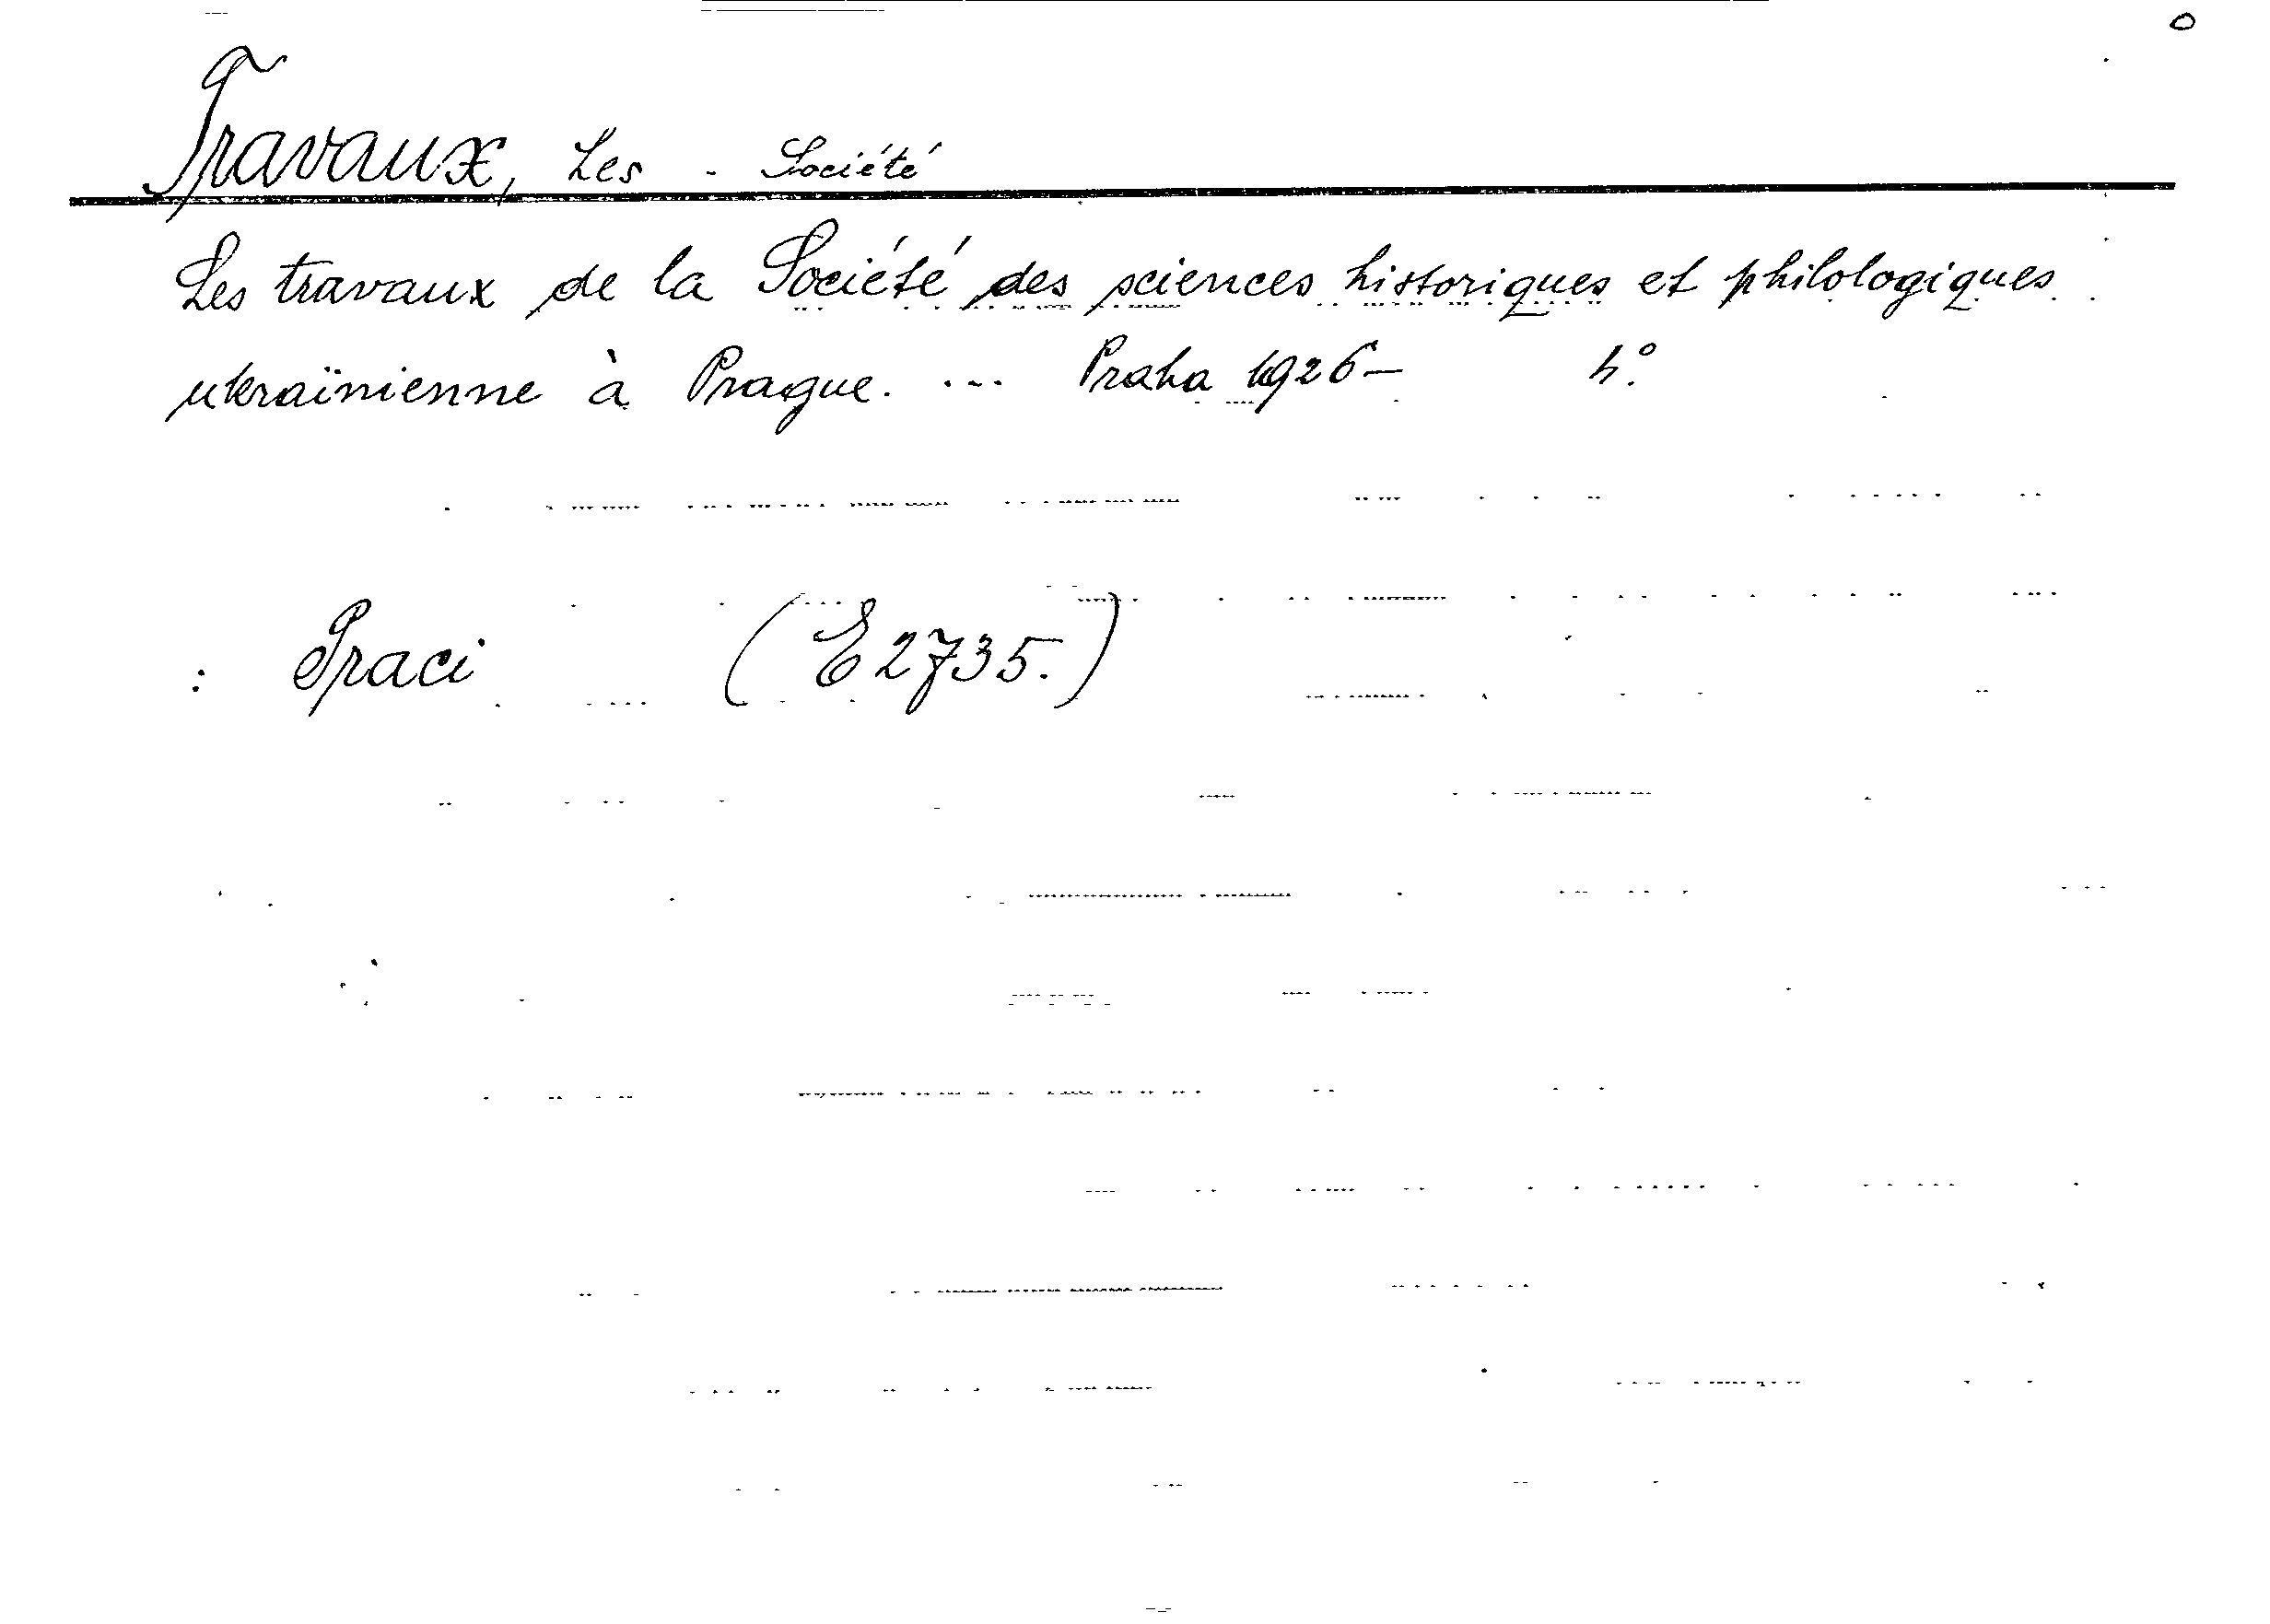 Travaux, Les - Société
Les travaux de la Société des sciences historiques et philologiques
ukraïnienne à Prague. ... Praha 1926- 4°.
: Praci (E 2735.)